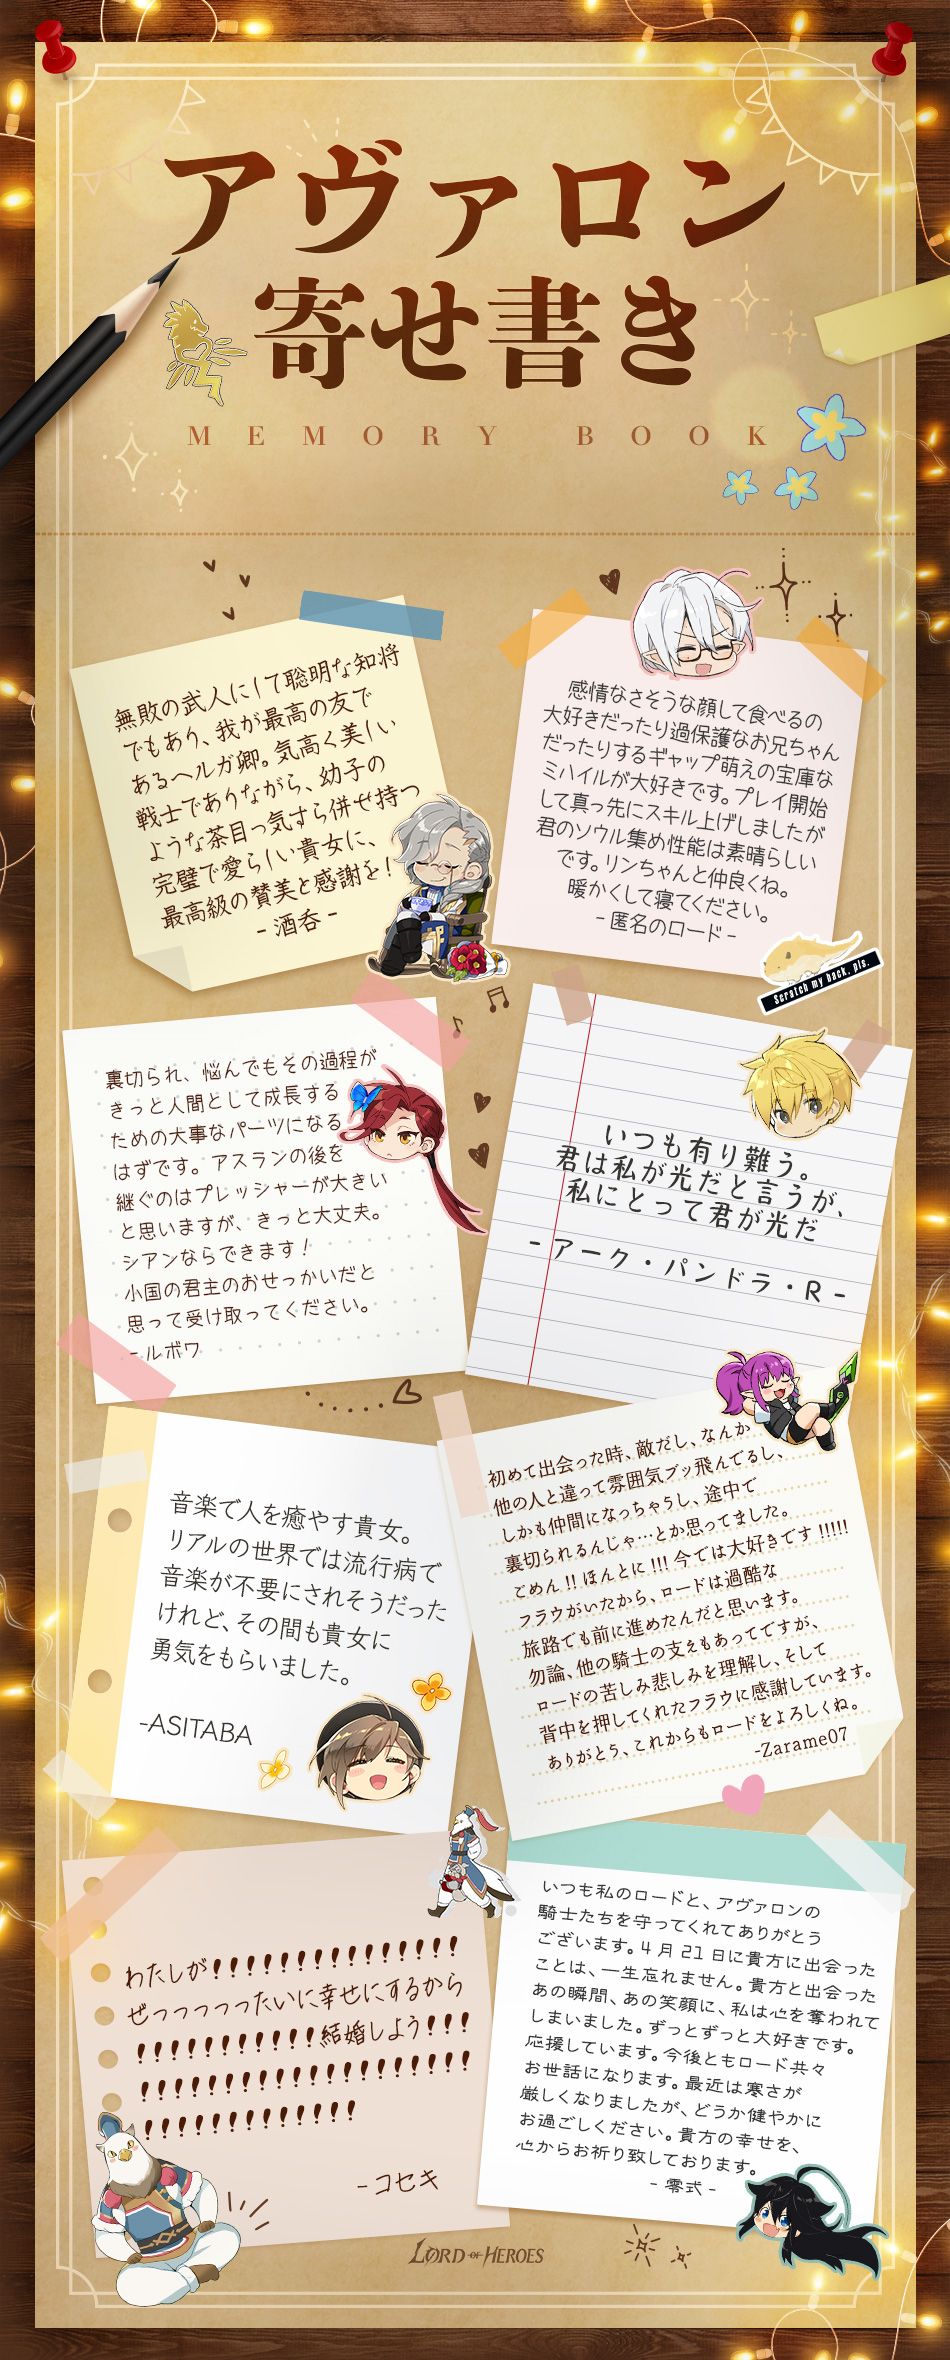 アヴァロン
寄せ書き
MEMORY BOOK
無敗の武人にして聡明な知将
でもあり、我が最高の友で
あるヘルガ卿。気高く美しい
戦士でありながら、幼子の
ような茶目っ気すら併せ持つ
完璧で愛らしい貴女に、
最高級の賛美と感謝を!
- 酒呑 -
感情なさそうな顔して食べるの
大好きだったり過保護なお兄ちゃん
だったりするギャップ萌えの宝庫な
ミハイルが大好きです。プレイ開始
して真っ先にスキル上げしましたが
君のソウル集め性能は素晴らしい
です。リンちゃんと仲良くね。
暖かくして寝てください。
- 匿名のロード -
Scratch my back, pls.
裏切られ、悩んでもその過程が
きっと人間として成長する
ための大事なパーツになる
はずです。アスランの後を
継ぐのはプレッシャーが大きい
と思いますが、きっと大丈夫。
シアンならできます!
小国の君主のおせっかいだと
思って受け取ってください。
- ルボワ
いつも有り難う。
君は私が光だと言うが、
私にとって君が光だ
- アーク・パンドラ・R -
音楽で人を癒やす貴女。
リアルの世界では流行病で
音楽が不要にされそうだった
けれど、その間も貴女に
勇気をもらいました。
-ASITABA
初めて出会った時、敵だし、なんか
他の人と違って雰囲気ブッ飛んでるし、
しかも仲間になっちゃうし、途中で
裏切られるんじゃ…とか思ってました。
ごめん!!ほんとに!!!今では大好きです!!!!!
フラウがいたから、ロードは過酷な
旅路でも前に進めたんだと思います。
勿論、他の騎士の支えもあってですが、
ロードの苦しみ悲しみを理解し、そして
背中を押してくれたフラウに感謝しています。
ありがとう、これからもロードをよろしくね。
-Zarame07
わたしが!!!!!!!!!!!!!!!
ぜっっっっったいに幸せにするから
!!!!!!!!!!!結婚しよう!!!
!!!!!!!!!!!!!!!!!!!!
!!!!!!!!!!!!!
- コセキ
いつも私のロードと、アヴァロンの
騎士たちを守ってくれてありがとう
ございます。4月21日に貴方に出会った
ことは、一生忘れません。貴方と出会った
あの瞬間、あの笑顔に、私は心を奪われて
しまいました。ずっとずっと大好きです。
応援しています。今後ともロード共々
お世話になります。最近は寒さが
厳しくなりましたが、どうか健やかに
お過ごしください。貴方の幸せを、
心からお祈り致しております。
- 零式 -
LORD OF HEROES